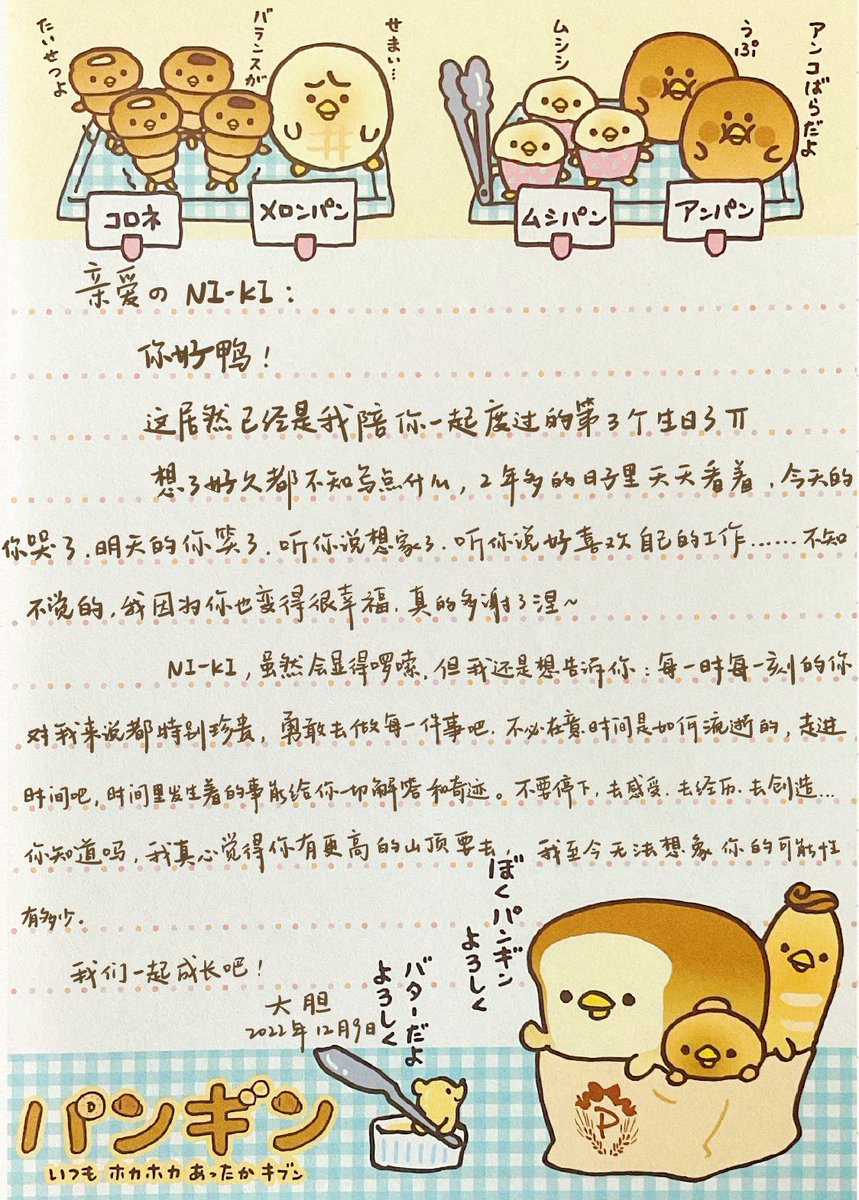 たいせつよ
バランスが
せまい…
ムシシ
うぷ
アンコばらだよ
コロネ
メロンパン
ムシパン
アンパン
亲爱の NI-KI：
你好鸭！
这居然已经是我陪你一起度过的第3个生日了π
想了好久都不知写点什么，2年多的日子里天天看着，今天的
你哭了，明天的你笑了，听你说想家了，听你说好喜欢自己的工作……不知
不觉的，我因为你也变得很幸福，真的多谢了涅~
NI-KI，虽然会显得啰嗦，但我还是想告诉你：每一时每一刻的你
对我来说都特别珍贵，勇敢去做每一件事吧，不必在意时间是如何流逝的，走进
时间吧，时间里发生着的事能给你一切解答和奇迹。不要停下，去感受，去经历，去创造…
你知道吗，我真心觉得你有更高的山顶要去，我至今无法想象你的可能性
有多少。
我们一起成长吧！
大胆
2022年12月9日
ぼくパンギン
よろしく
バターだよ
よろしく
P
パンギン
いつも ホカホカ あったか キブン